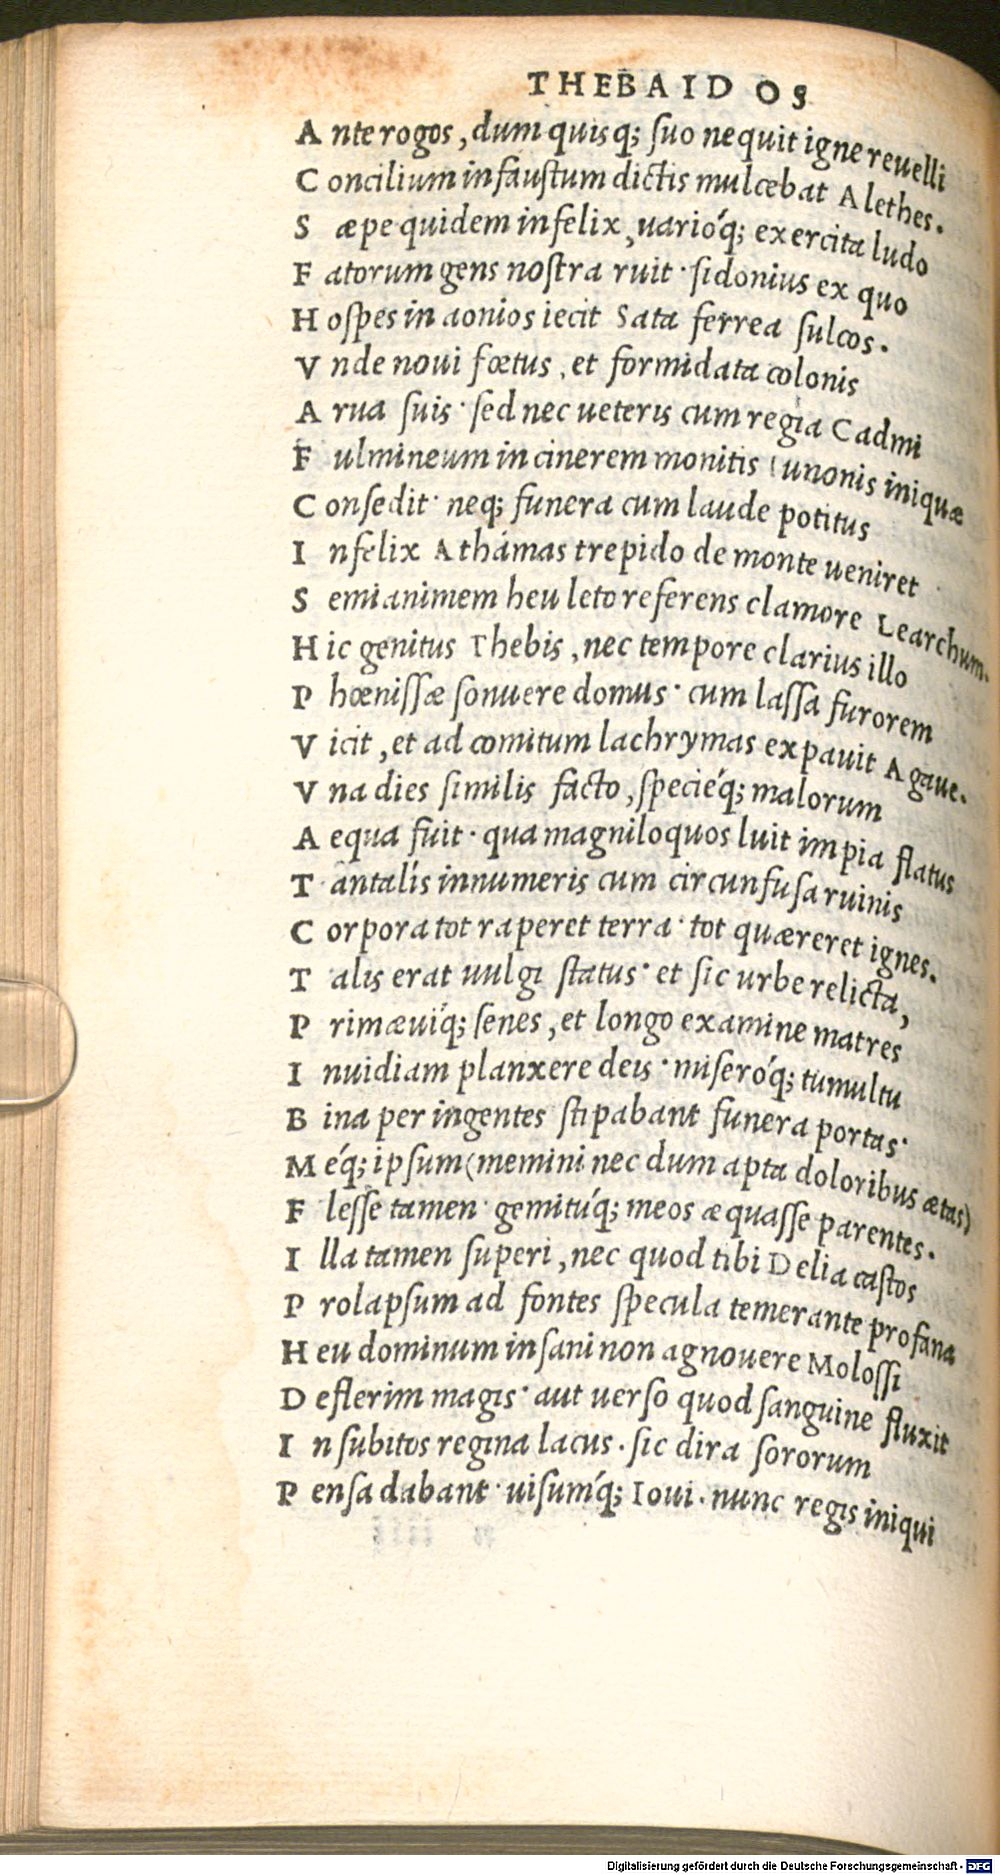 THEBAIDOS
Ante rogos, dum quisq; ſuo nequit igne reuelli
Concilium infauſtum dictis mulcebat Alethes.
Sæpe quidem infelix, uarióq; exercita ludo
Fatorum gens noſtra ruit· ſidonius ex quo
Hoſpes in aonios iecit Sata ferrea ſulcos.
Vnde noui fœtus, et formidata colonis
Arua ſuis· ſed nec ueteris cum regia Cadmi
Fulmineum in cinerem monitis Iunonis iniquæ
Conſedit· neq; funera cum laude potitus
Infelix Athámas trepido de monte ueniret
Semianimem heu leto referens clamore Learchum.
Hic genitus Thebis, nec tempore clarius illo
Phœniſſæ ſonuere domus· cum laſſa furorem
Vicit, et ad comitum lachrymas expauit Agaue.
Vna dies ſimilis facto, ſpecieq́; malorum
Aequa fuit· qua magniloquos luit impia flatus
Tantalis innumeris cum circunfuſa ruinis
Corpora tot raperet terra· tot quæreret ignes.
Talis erat uulgi ſtatus· et ſic urbe relicta,
Primæuiq́; ſenes, et longo examine matres
Inuidiam planxere deis· miſeróq; tumultu
Bina per ingentes ſtipabant funera portas·
Méq; ipſum (memini nec dum apta doloribus ætas)
Fleſſe tamen· gemitúq; meos æquaſſe parentes.
Illa tamen ſuperi, nec quod tibi Delia caſtos
Prolapſum ad fontes ſpecula temerante profana
Heu dominum inſani non agnouere Moloſſi
Deflerim magis· aut uerſo quod ſanguine fluxit
In ſubitos regina lacus. ſic dira ſororum
Penſa dabant· uiſumq́; Ioui. nunc regis iniqui
Digitalisierung gefördert durch die Deutsche Forschungsgemeinschaft - DFG